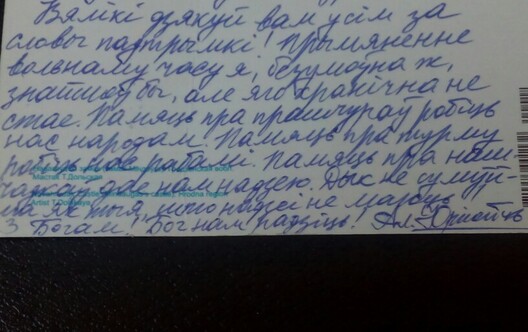 Вялікі дзякуй вам усім за
словы падтрымкі! Прымяненне
вольнаму часу я, безумоўна ж,
знайшоў бы, але яго хранічна не
стае. Памяць пра прашчураў робіць
нас народам. Памяць пра турму
робіць нас рабамі. Памяць пра наш-
чадкаў дае нам надзею. Дык не сумуй-
ма як тыя, што надзеі не маюць.
З Богам! Бог нам радзіць. Ал.